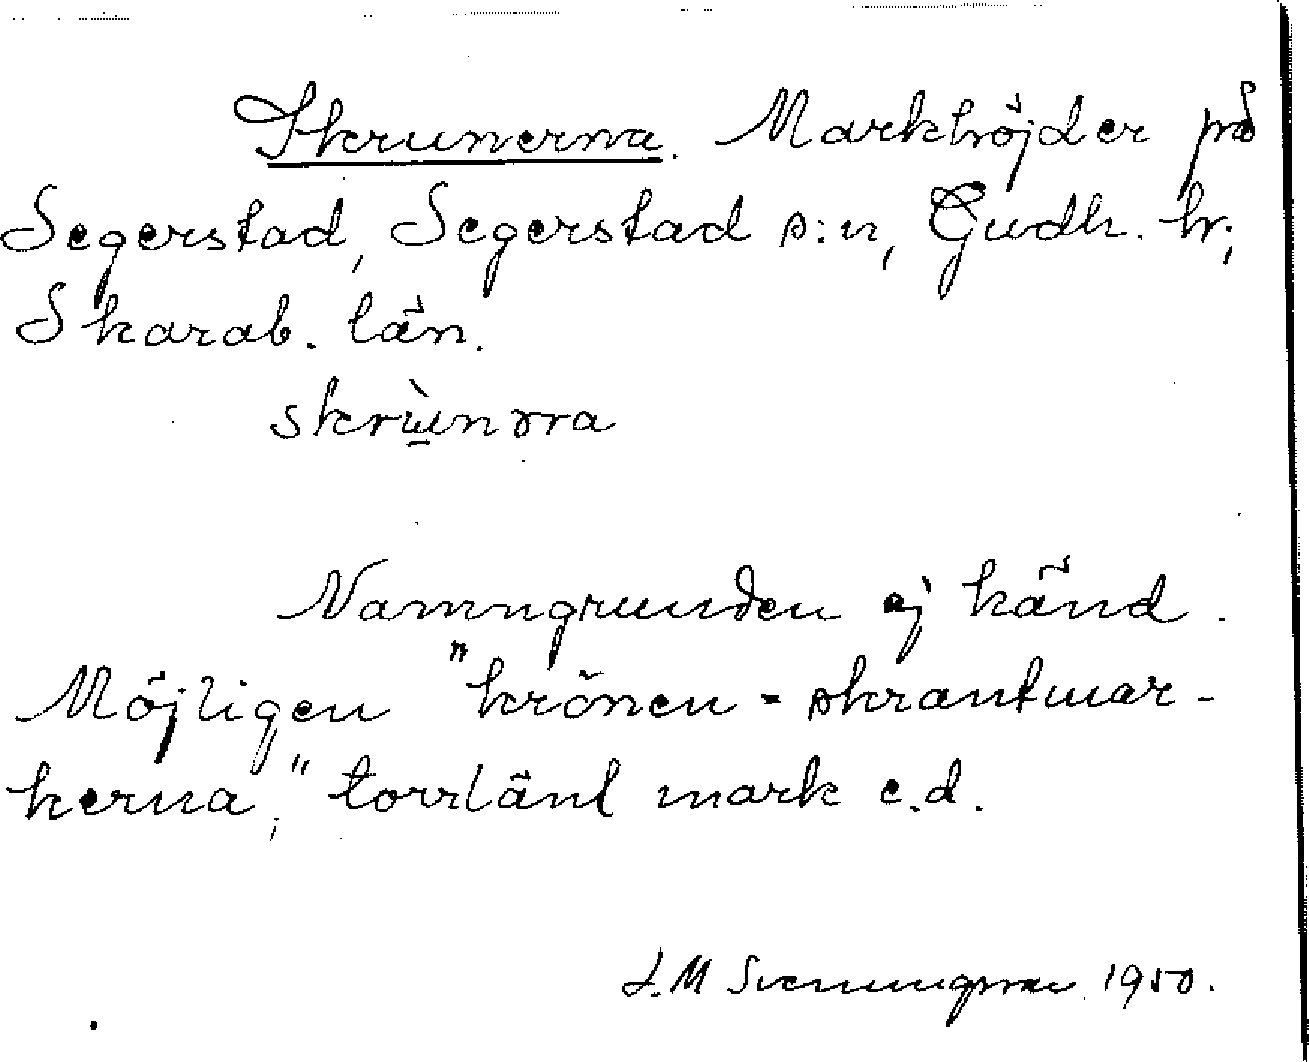 Skrunerna. Markhöjder på
Segerstad, Segerstad s:n, Gudh. hr;
Skarab. län.
skrùnɤra
Namngrunden ej känd.
Möjligen "krönen = skrantmar-
kerna;" torrlänt mark e.d.
J.M Svenungsson 1950.